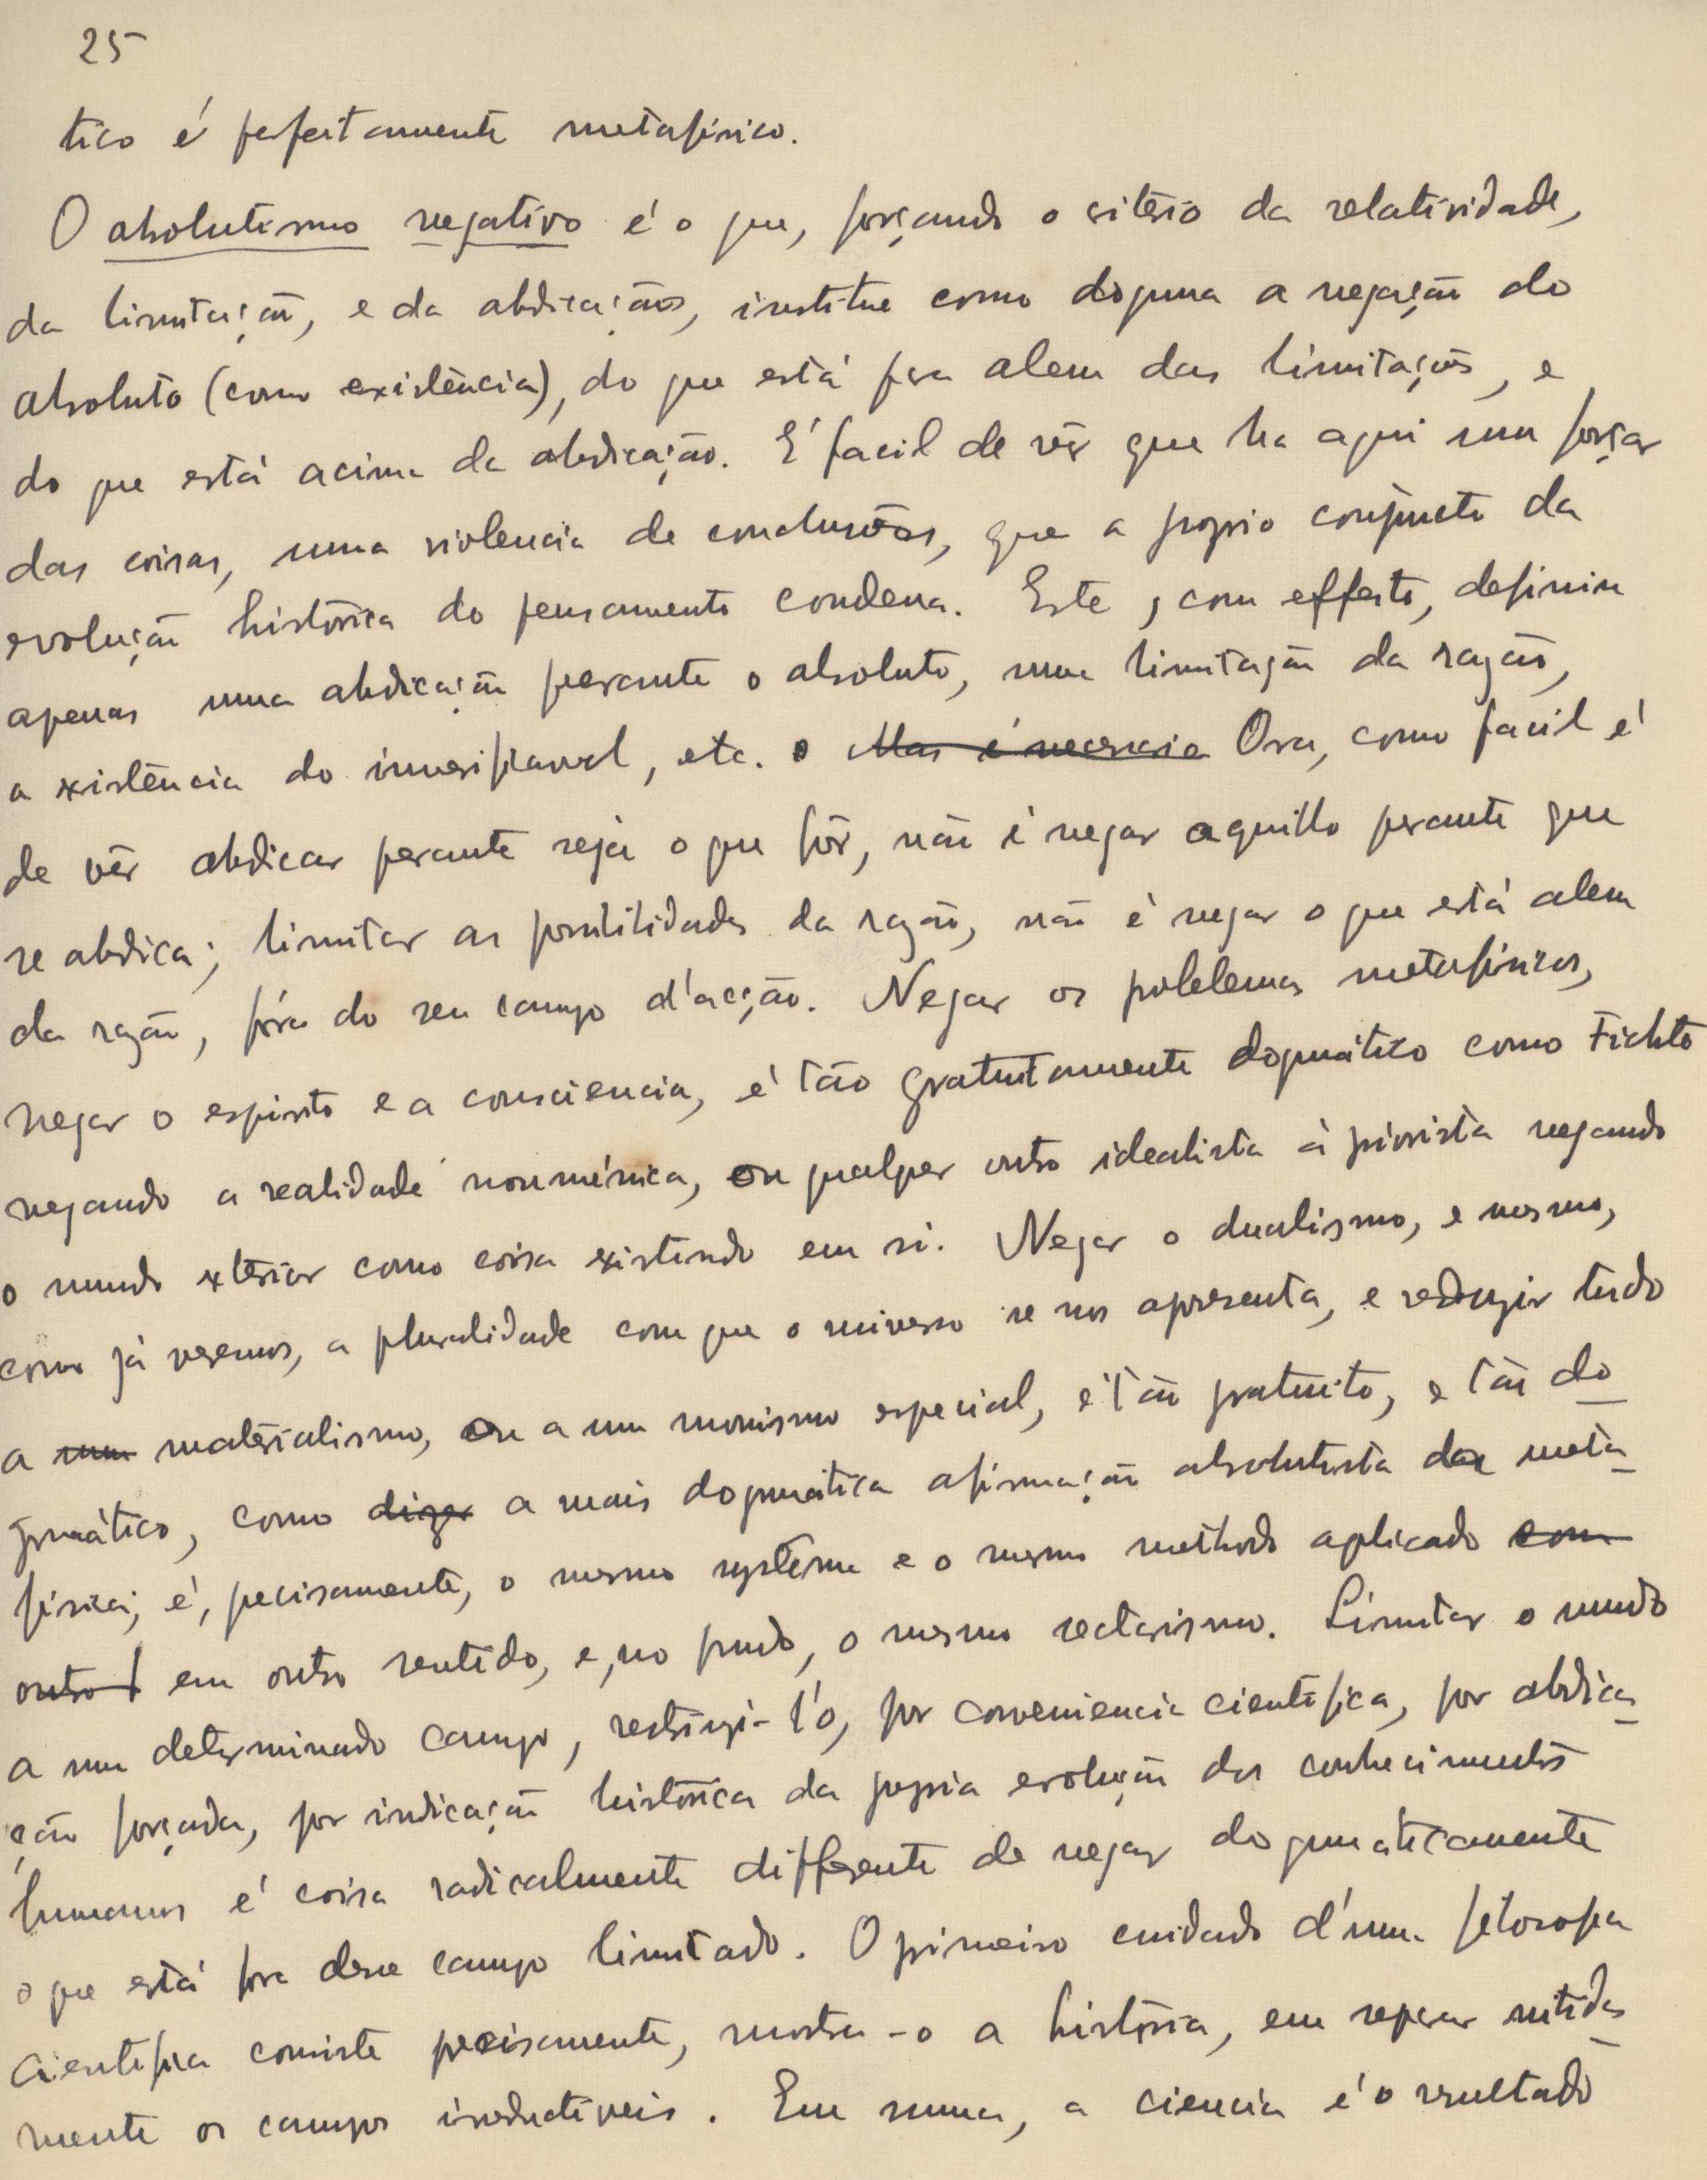 25
tico é perfeitamente metafísico.
O absolutismo negativo é o que, forçando o critério da relatividade,
da limitação, e da abdicação, institue como dogma a negação do
absoluto (como existência), do que está fora alem das limitações, e
do que está acima da abdicação. É facil de vêr que ha aqui um forçar
das coisas, uma violencia de conclusões, que a proprio conjuncto da
evolução histórica do pensamento condena. Este, com effeito, definiu
apenas uma abdicação perante o absoluto, uma limitação da razão,
a existência do inverificavel, etc. o Mas é necessario Ora, como facil é
de vêr abdicar perante seja o que fôr, não é negar aquillo perante que
se abdica; limitar as possibilidades da razão, não é negar o que está alem
da razão, fóra do seu campo d'acção. Negar os problemas metafísicos,
negar o espirito e a consciencia, é tão gratuitamente dogmático como Fichte
negando a realidade noumênica, ou qualquer outro idealista à priorista negando
o mundo exterior como coisa existindo em si. Negar o dualismo, e mesmo,
como já veremos, a pluralidade com que o universo se nos apresenta, e reduzir tudo
a um materialismo, ou a um monismo especial, é tão gratuito, e tão do-
gmático, como dizer a mais dogmática afirmação absolutista da meta-
física; é, precisamente, o mesmo systema e o mesmo methodo aplicado com
outro em outro sentido, e, no fundo, o mesmo sectarismo. Limitar o mundo
a um determinado campo, restringi-l'o, por conveniencia cientifica, por abdica-
ção forçada, por indicação histórica da propria evolução dos conhecimentos
humanos é coisa radicalmente differente de negar dogmaticamente
o que está fora desse campo limitado. O primeiro cuidado d'uma filosofia
cientifica consiste precisamente, mostra-o a história, em separar nitida-
mente os campos irreductiveis. Em suma, a ciencia é o resultado